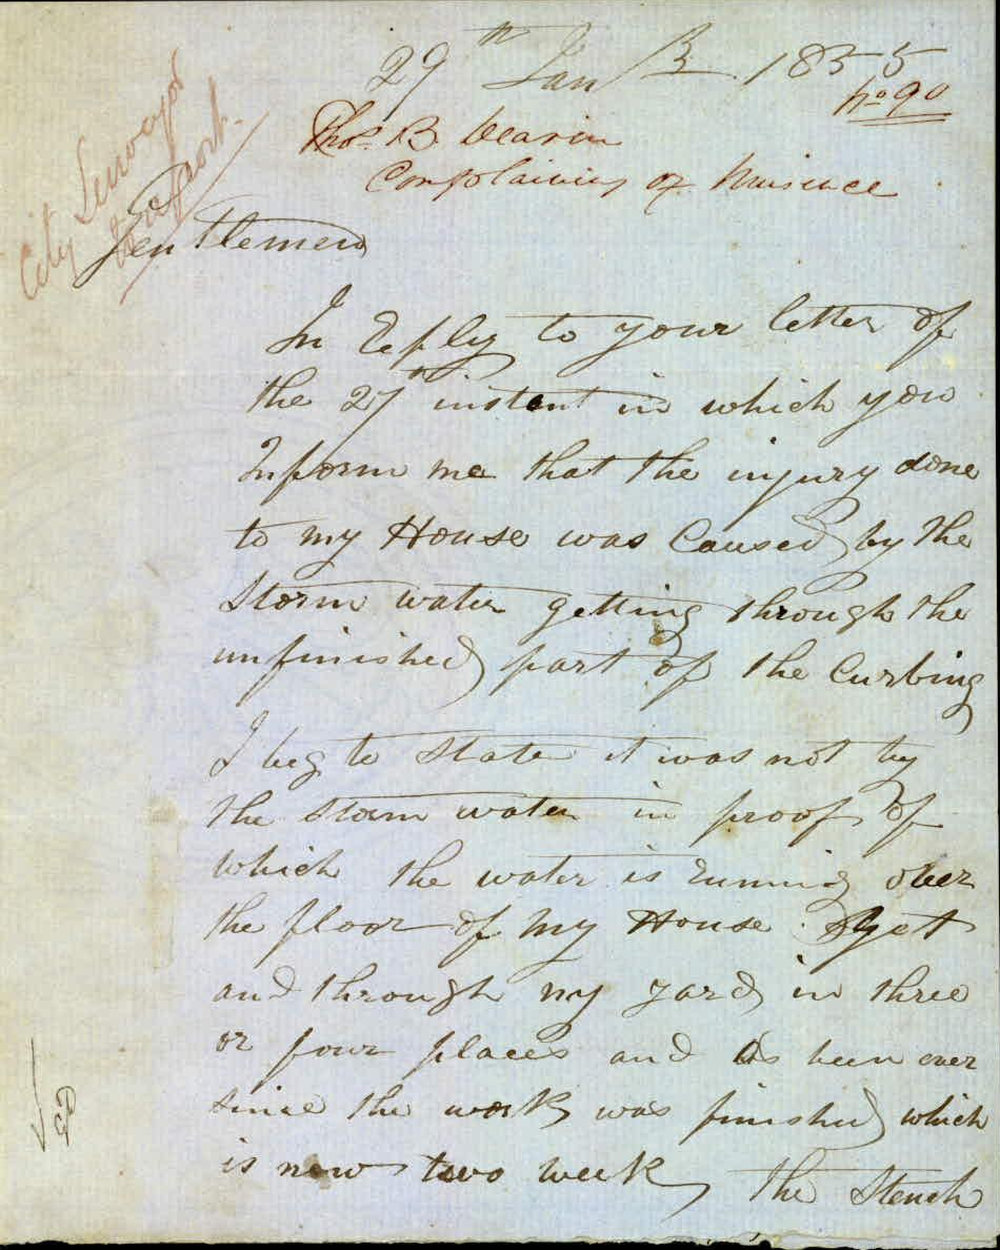 29th Jan 1855
No 90
Thos. B. Dearin
Complaining of Nuisance
City Surveyor
to report.
Gentlemen
In Reply to your letter of
the 27th instant in which you
Inform me that the injury done
to my House was Caused by the
Storm water getting through the
unfinished part of the Curbing
I beg to state it was not by
the storm water in proof of
which the water is runing over
the floor of my House yet
and through my yard in three
or four places and as been ever
since the work was finished which
is now two week, The Stench